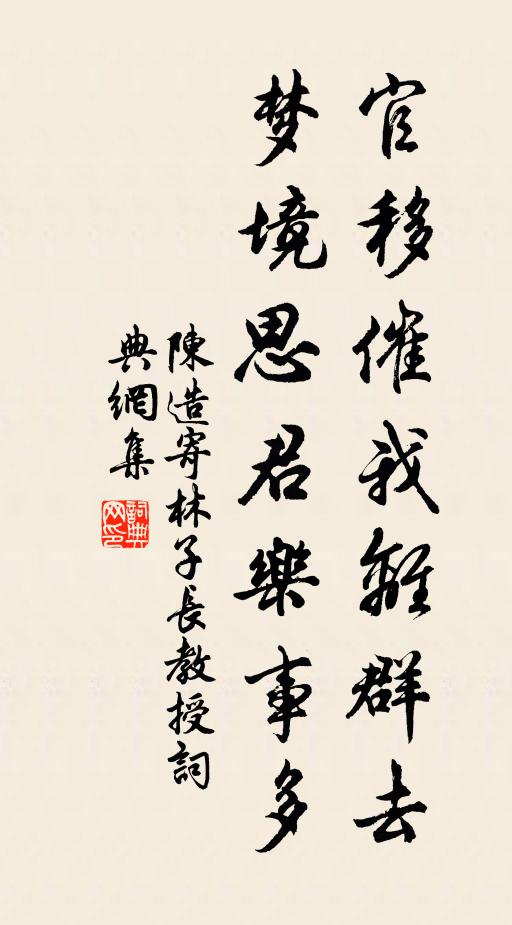 官移催我離群去
梦境思君樂事多
陳造寄林子長教授詞
典網集
詞典
网印